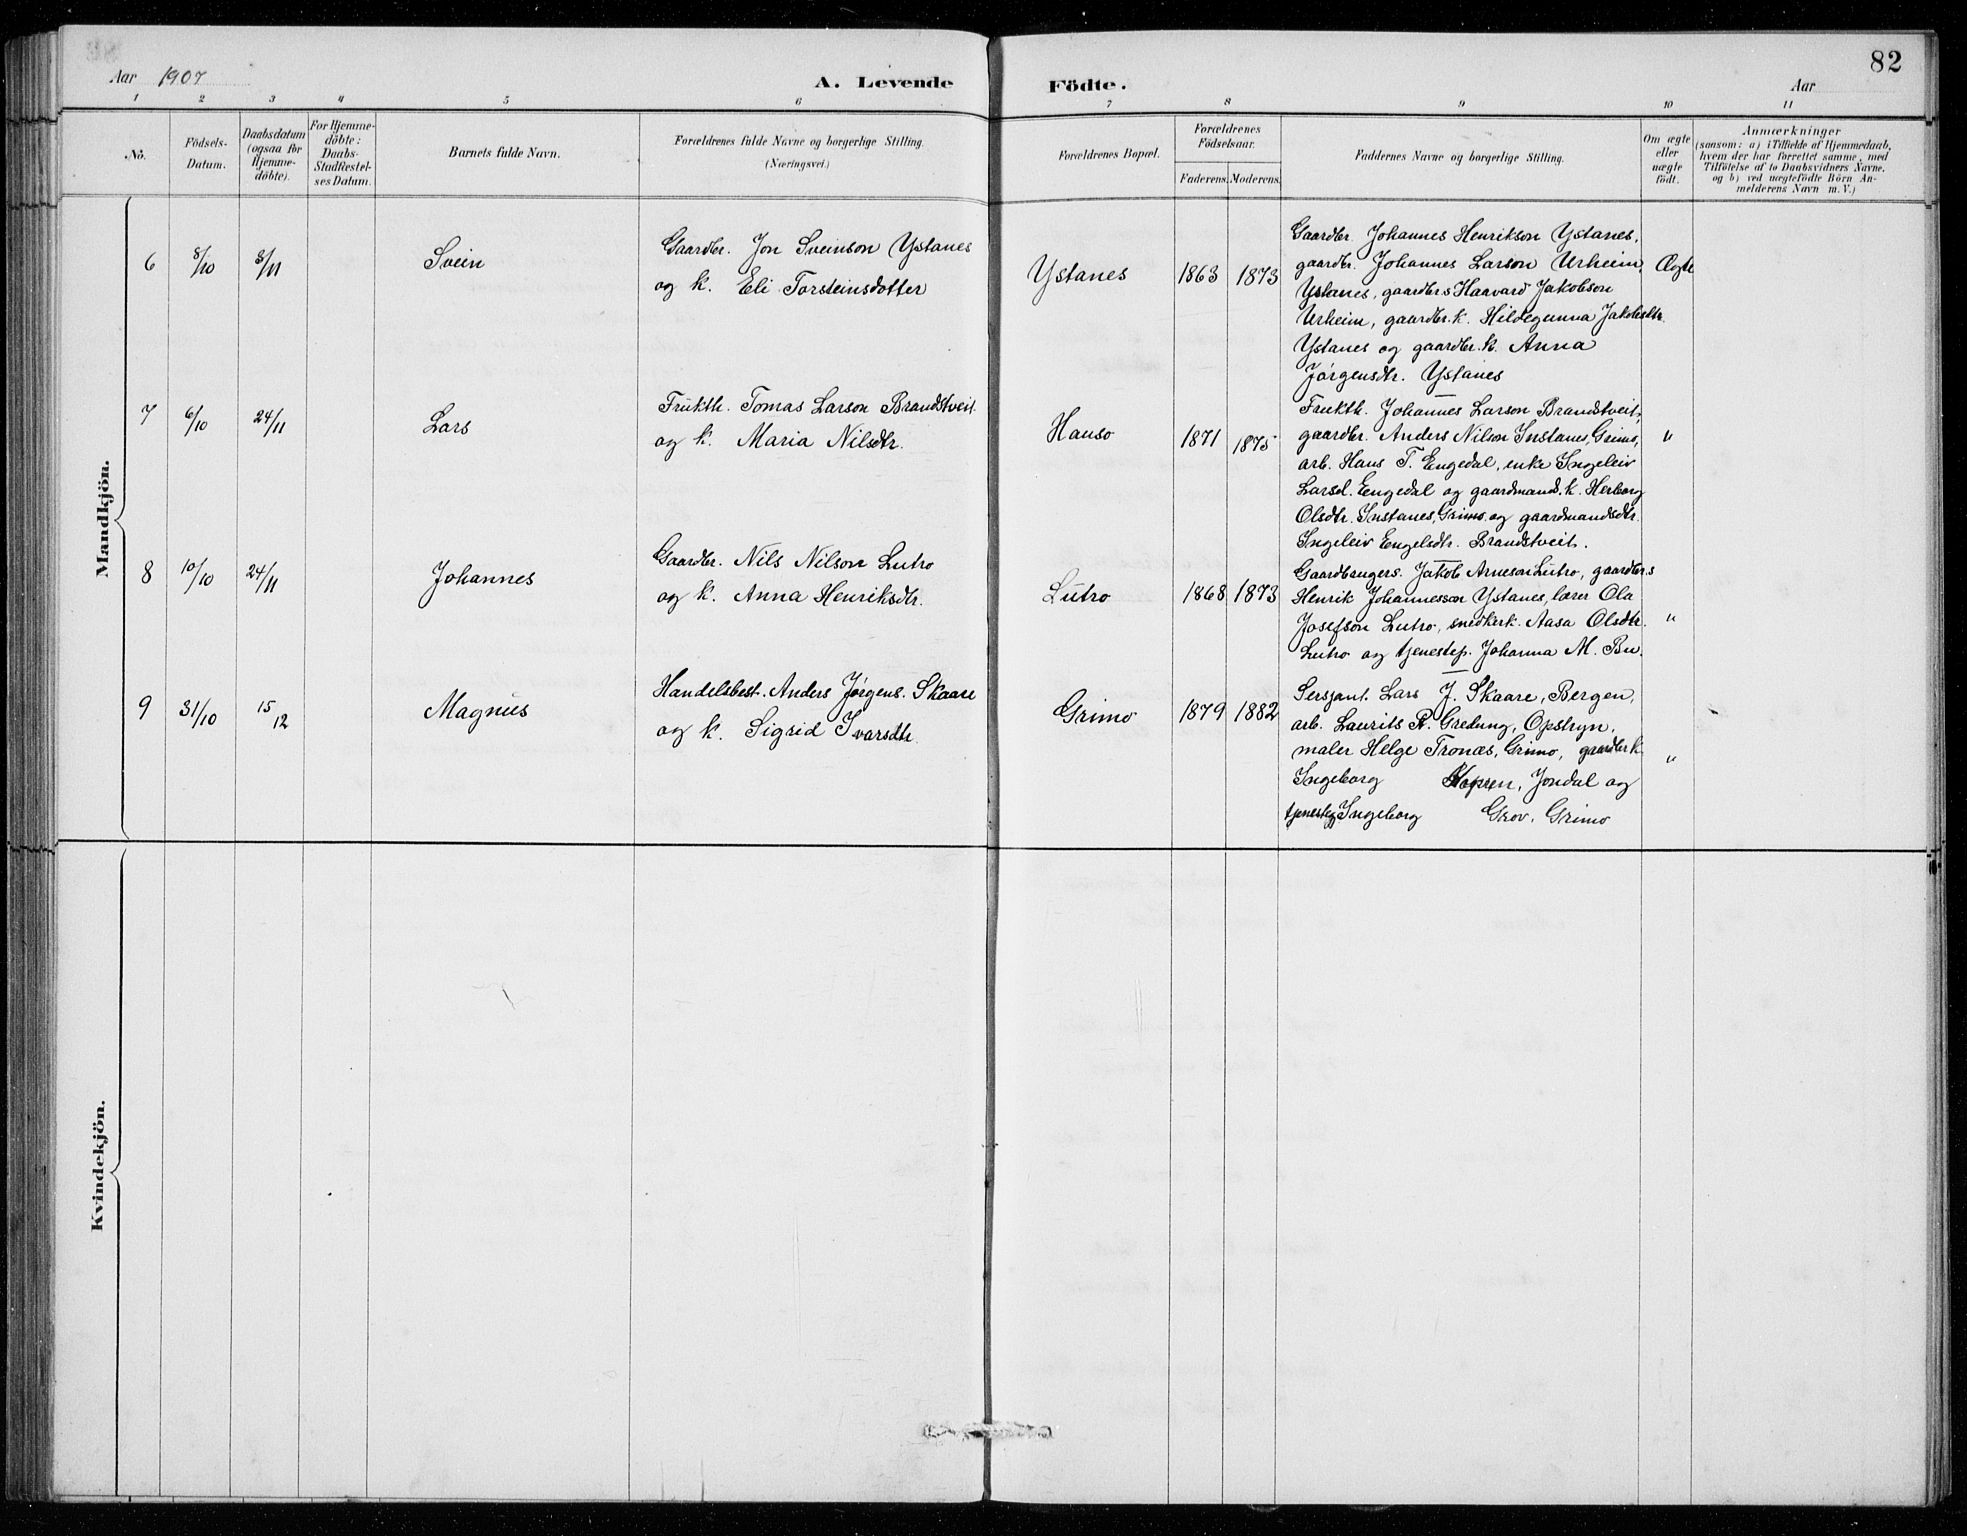 82
Aar 1907
A. Levende
Födte.
Aar
1 2 3 4 5 6 7 8 9 10 11
No.
Födsels-
Datum.
Daabsdatum
(ogsaa for
Hjemme-
döbte).
For Hjemme-
döbte:
Daabs-
Stadfæstel-
ses Datum.
Barnets fulde Navn.
Forældrenes fulde Navne og borgerlige Stilling.
(Næringsvei.)
Forældrenes Bopæl.
Forældrenes
Födselsaar.
Faderens. Moderens.
Faddernes Navne og borgerlige Stilling.
Om ægte
eller
uægte
födt.
Anmærkninger
(saasom: a) i Tilfælde af Hjemmedaab,
hvem der har forrettet samme, med
Tilföielse af to Daabsvidners Navne.
og b) ved uægtefödte Börn An-
melderens Navn m. V.)
Mandkjön.
6 8/10 3/11 Svein
Gaardbr. Jon Sveinson Ystanes
og k. Eli Torsteinsdotter
Ystanes 1863 1873
Gaardbr. Johannes Henrikson Ystanes,
gaardbr. Johannes Larson Urheim,
Ystanes, gaardbrs Haavard Jakobson
Urheim, gaardbr.k. Hildegunna Jakobsdtr.
Ystanes og gaardbr.k. Anna
Jørgensdtr. Ystanes
Ægte
7 6/10 24/11 Lars
Frukth. Tomas Larson Brandstveit
og k. Maria Nilsdtr.
Hauso 1871 1875
Frukth. Johannes Larson Brandstveit,
gaardbr. Anders Nilson Instanes, Grimo,
arb. Hans T. Engedal, enke Ingeleiv
Larsd. Engedal og gaardmands.k. Herborg
Olsdtr. Instanes, Grimo og gaardmandsdtr.
Ingeleiv Engelsdtr. Brandstveit.
"
8 10/10 24/11 Johannes
Gaardbr. Nils Nilson Lutro
og k. Anna Henriksdtr.
Lutro 1868 1873
Gaardbrugers. Jakob Arneson Lutro, gaardbr.s
Henrik Johannesson Ystanes, lærer Ola
Josefson Lutro, snedkerk. Aasa Olsdtr.
Lutro og tjenestep. Johanna M. Bu.
"
9 31/10 15/12 Magnus
Handelsbest. Anders Jørgens. Skaare
og k. Sigrid Ivarsdtr.
Grimo 1879 1882
Sersjant. Lars J. Skaare, Bergen,
arb. Laurits R. Gredung, Opstryn,
maler Helge Tronæs, Grimo, gaardbr k.
Ingeborg Jondal og
tjenestep Ingeborg Grov, Grimo
"
Kvindekjön.